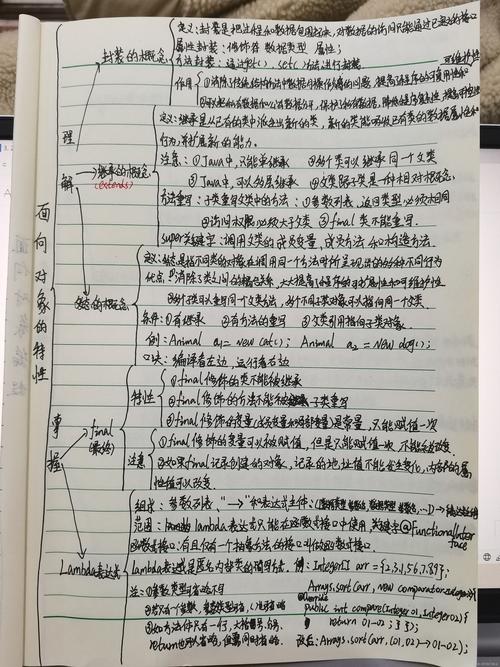 面向对象的特性
理解
封装的概念
定义:封装是把过程和数据包围起来,对数据的访问只能通过已定义的接口
属性封装:修饰符 数据类型 属性;
方法封装:通过get(),set()方法进行封装
作用
可维护性
继承的概念
(extends)
定义:继承是从已有的类中派生出新的类,新的类能吸收已有类的数据属性和
行为,并扩展新的能力。
注意:①Java中,只能单继承 ②多个类可以继承同一个父类
③Java中,可以多层继承 ④父类跟子类是一种相对概念
方法重写:子类重写父类中的方法:①参数列表,返回类型必须相同
②访问权限必须大于父类 ③final类不能重写.
super关键字:调用父类的成员变量,成员方法和构造方法.
多态的概念
定义:多态是指不同类的对象在调用同一个方法时所呈现出的多种不同行为
优点:①消除了类之间的耦合关系,大大提高了程序的可扩展性和可维护性
②多个子类可以重写同一个父类方法,多个不同子类对象可以指向同一个父类.
条件:①有继承 ②有方法的重写 ③父类引用指向子类对象.
例:Animal a1 = new cat(); Animal a2 = new dog();
口诀:编译看左边,运行看右边
掌握
final
(最终)
特性
①final修饰的类不能被继承
②final修饰的方法不能被子类重写
③final修饰的变量(成员变量和局部变量)是常量,只能赋值一次
注意
①final修饰的变量可以被赋值,但是只能赋值一次,不能
②如果final记录创建的对象,记录的地址值不能发生变化,内容的属
性值可以改变.
Lambda表达式
组成:参数列表、"→"和表达式主体:
范围:lambda表达式只能在函数式接口中使用,关键字@functionalInter
face
函数式接口:有且仅有一个抽象方法的接口叫做函数式接口.
lambda表达式是匿名内部类的简写方法. 例:Integer[] arr = {2,3,1,5,6,7,8,9};
注:①参数类型可省略不写
Arrays.sort(arr, new comparator
②若只有一个参数,参数类型可省,()也可省略
public int compare(Integer o1, Integer o2) {
③如方法体只有一行,大括号、分号、
return o1-o2; } });
return也可以省略,但需同时省略
改后:Arrays.sort(arr, (o1,o2)→o1-o2);